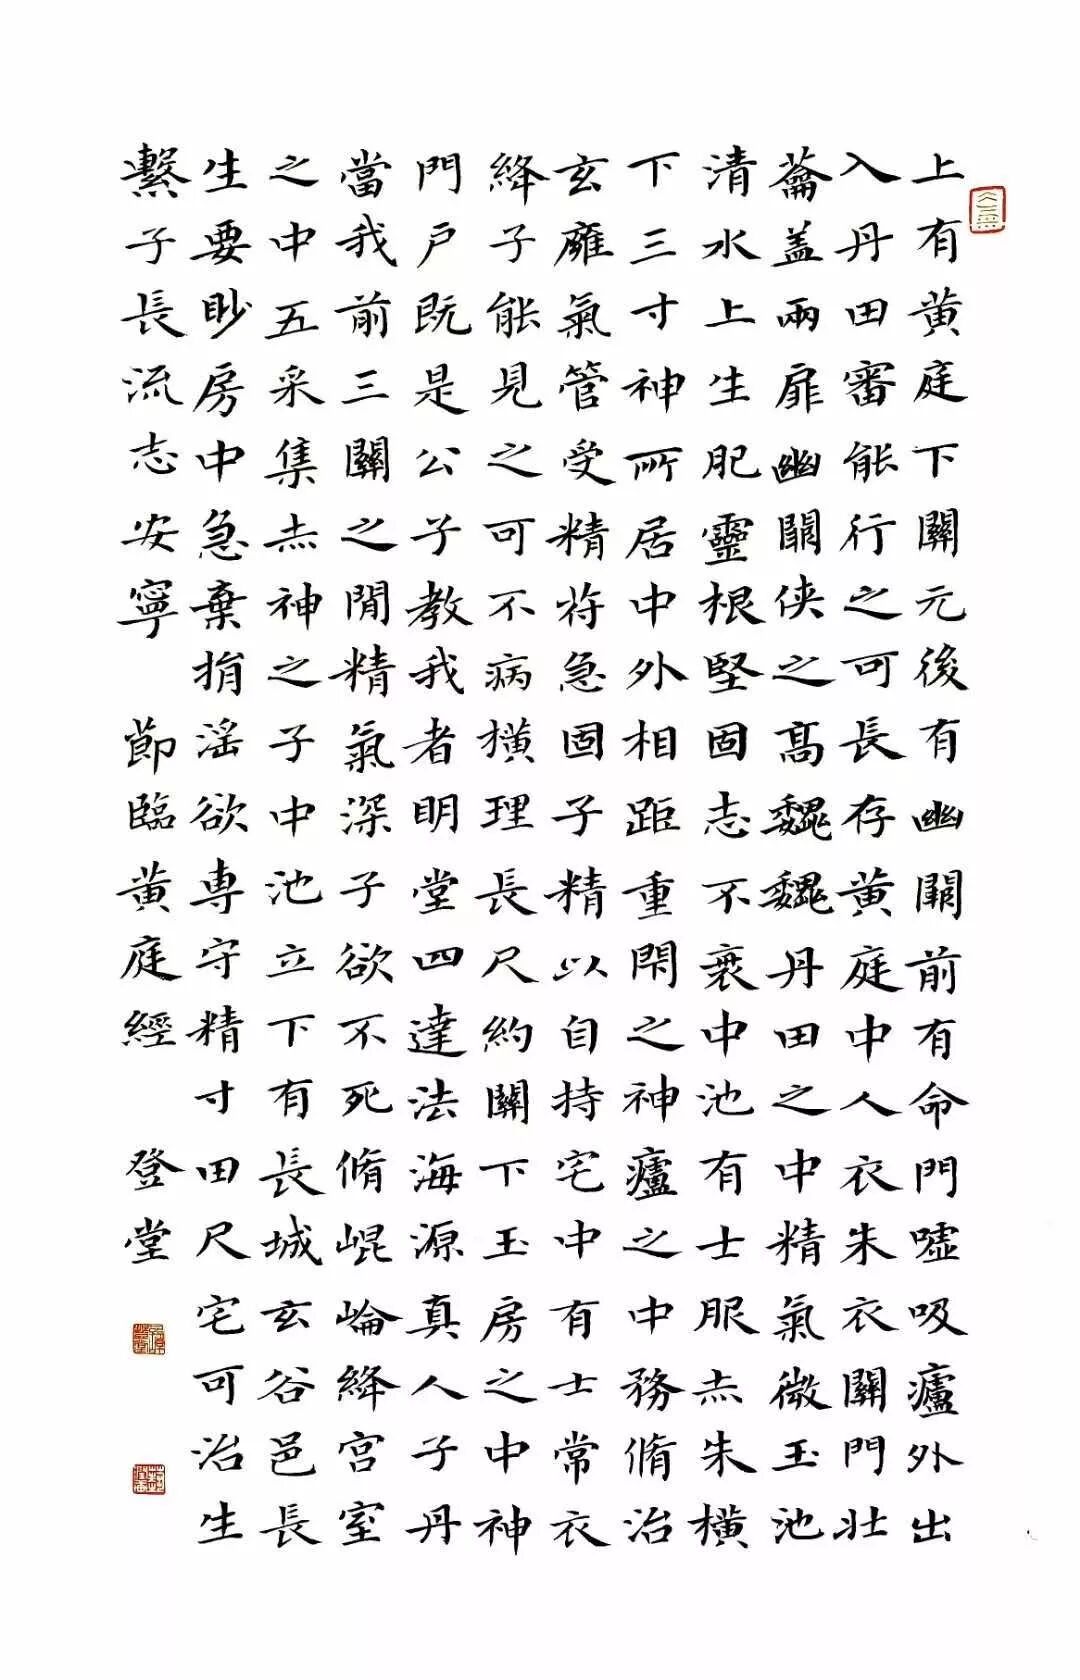 上有黄庭下關元後有幽闕前有命門嘘吸廬外出
入丹田審能行之可長存黄庭中人衣朱衣關門壯
蘥盖兩扉幽闕侠之髙魏魏丹田之中精氣微玉池
清水上生肥靈根堅固志不衰中池有士服赤朱横
下三寸神所居中外相距重閇之神廬之中務脩治
玄廱氣管受精符急固子精以自持宅中有士常衣
絳子能見之可不病横理長尺約關下玉房之中神
門户既是公子教我者明堂四達法海源真人子丹
當我前三關之閒精氣深子欲不死脩崐崘絳宫室
之中五采集赤神之子中池立下有長城玄谷邑長
生要眇房中急棄捐淫欲専守精寸田尺宅可治生
繫子長流志安寧 節臨黄庭經 登堂